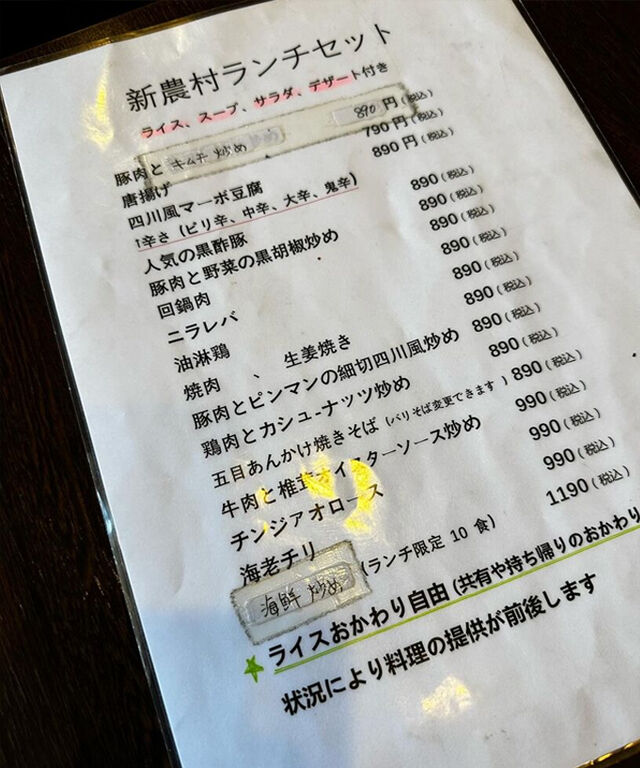 新農村ランチセット
ライス、スープ、サラダ、デザート付き
豚肉と キムチ 炒め 890 円 (税込)
唐揚げ 790 円 (税込)
四川風マーボ豆腐 890 円 (税込)
↑辛さ (ピリ辛、中辛、大辛、鬼辛)
人気の黒酢豚 890 (税込)
豚肉と野菜の黒胡椒炒め 890 (税込)
回鍋肉 890 (税込)
ニラレバ 890 (税込)
油淋鶏 890 (税込)
焼肉 、 生姜焼き 890 (税込)
豚肉とピンマンの細切四川風炒め 890 (税込)
鶏肉とカシュ-ナッツ炒め 890 (税込)
五目あんかけ焼きそば (バリそば変更できます ) 890 (税込)
牛肉と椎茸オイスターソース炒め 990 (税込)
チンジァオロース 990 (税込)
海老チリ 990 (税込)
海鮮 炒め (ランチ限定 10 食) 1190 (税込)
★ライスおかわり自由 (共有や持ち帰りのおかわり
状況により料理の提供が前後します